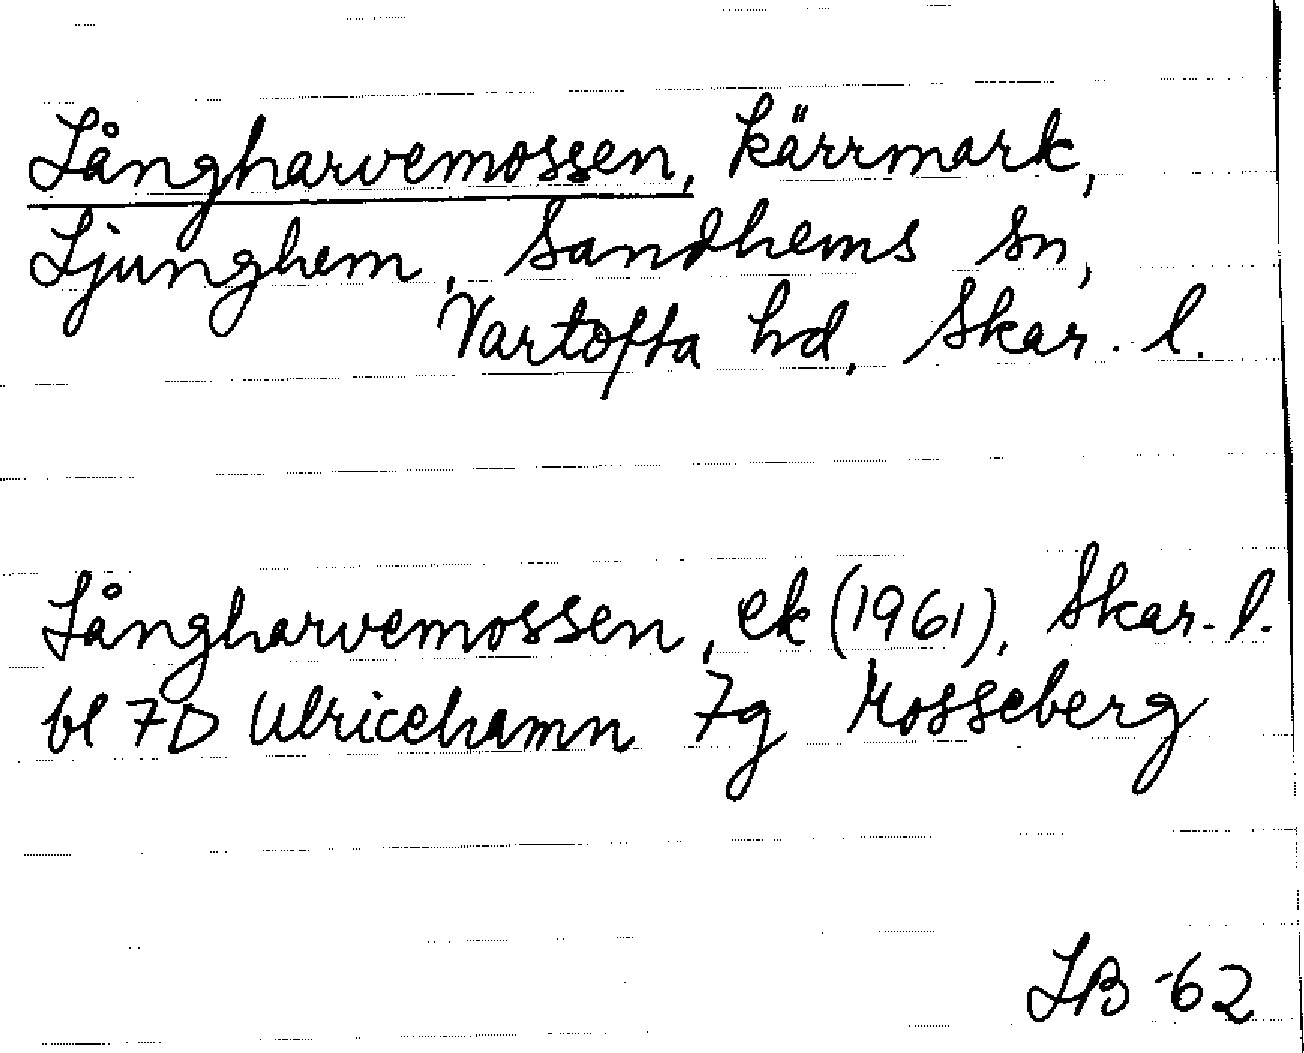 Långharvemossen, kärrmark,
Ljunghem, Sandhems sn,
Vartofta hd, Skar. l.
Långharvemossen, ek (1961), Skar. l.
bl 7D Ulricehamn 7g Mosseberg
LB -62